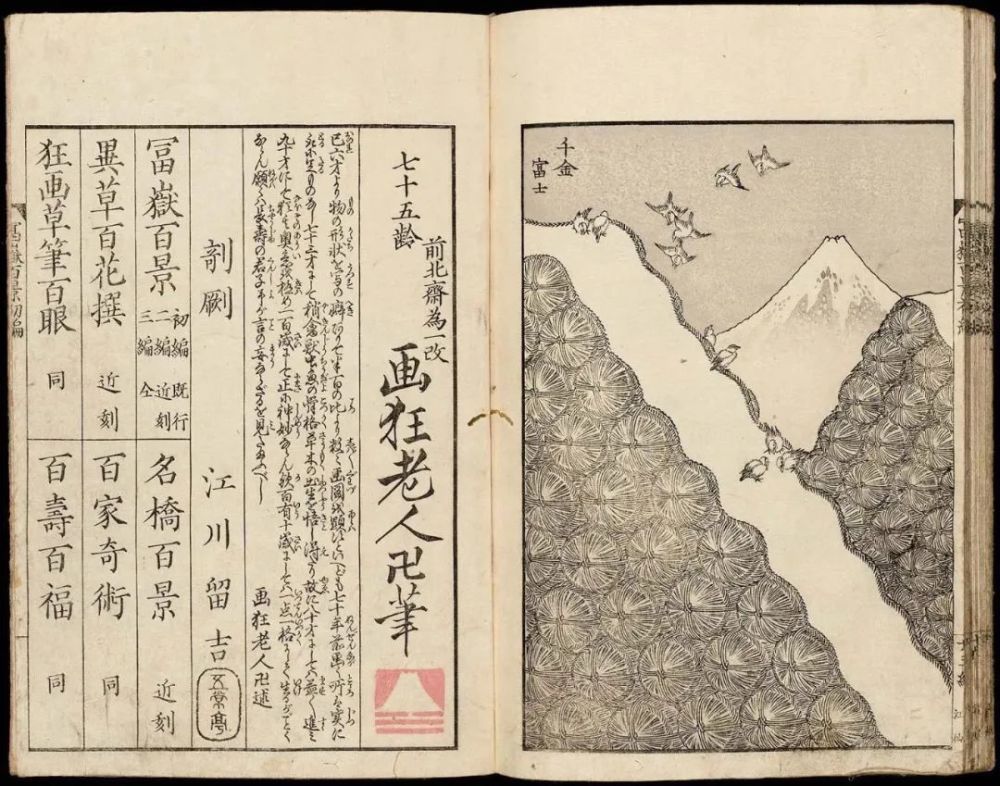 千金
富士
七十五齢
前北齋為一改
画狂老人卍筆
己六才より物の形状を写の癖ありて半百の比より数々画図を顕すといへども七十年前画く所は実に
取に足ものなし七十三才にして稍禽獣虫魚の骨格草木の出生を悟し得たり故に八十才にしては益々進み
九十才にして猶其奥意を極め一百歳にして正に神妙ならん歟百有十歳にしては一点一格にして生るがごとく
ならん願くは長寿の君子予が言の妄ならざるを見たまふべし
画狂老人卍述
剞劂 江川留吉 五常亭
冨嶽百景 初編既行
二編近刻
三編仝
異草百花撰 近刻
狂画草筆百眼 同
名橋百景 近刻
百家奇術 同
百壽百福 同
冨嶽百景初編